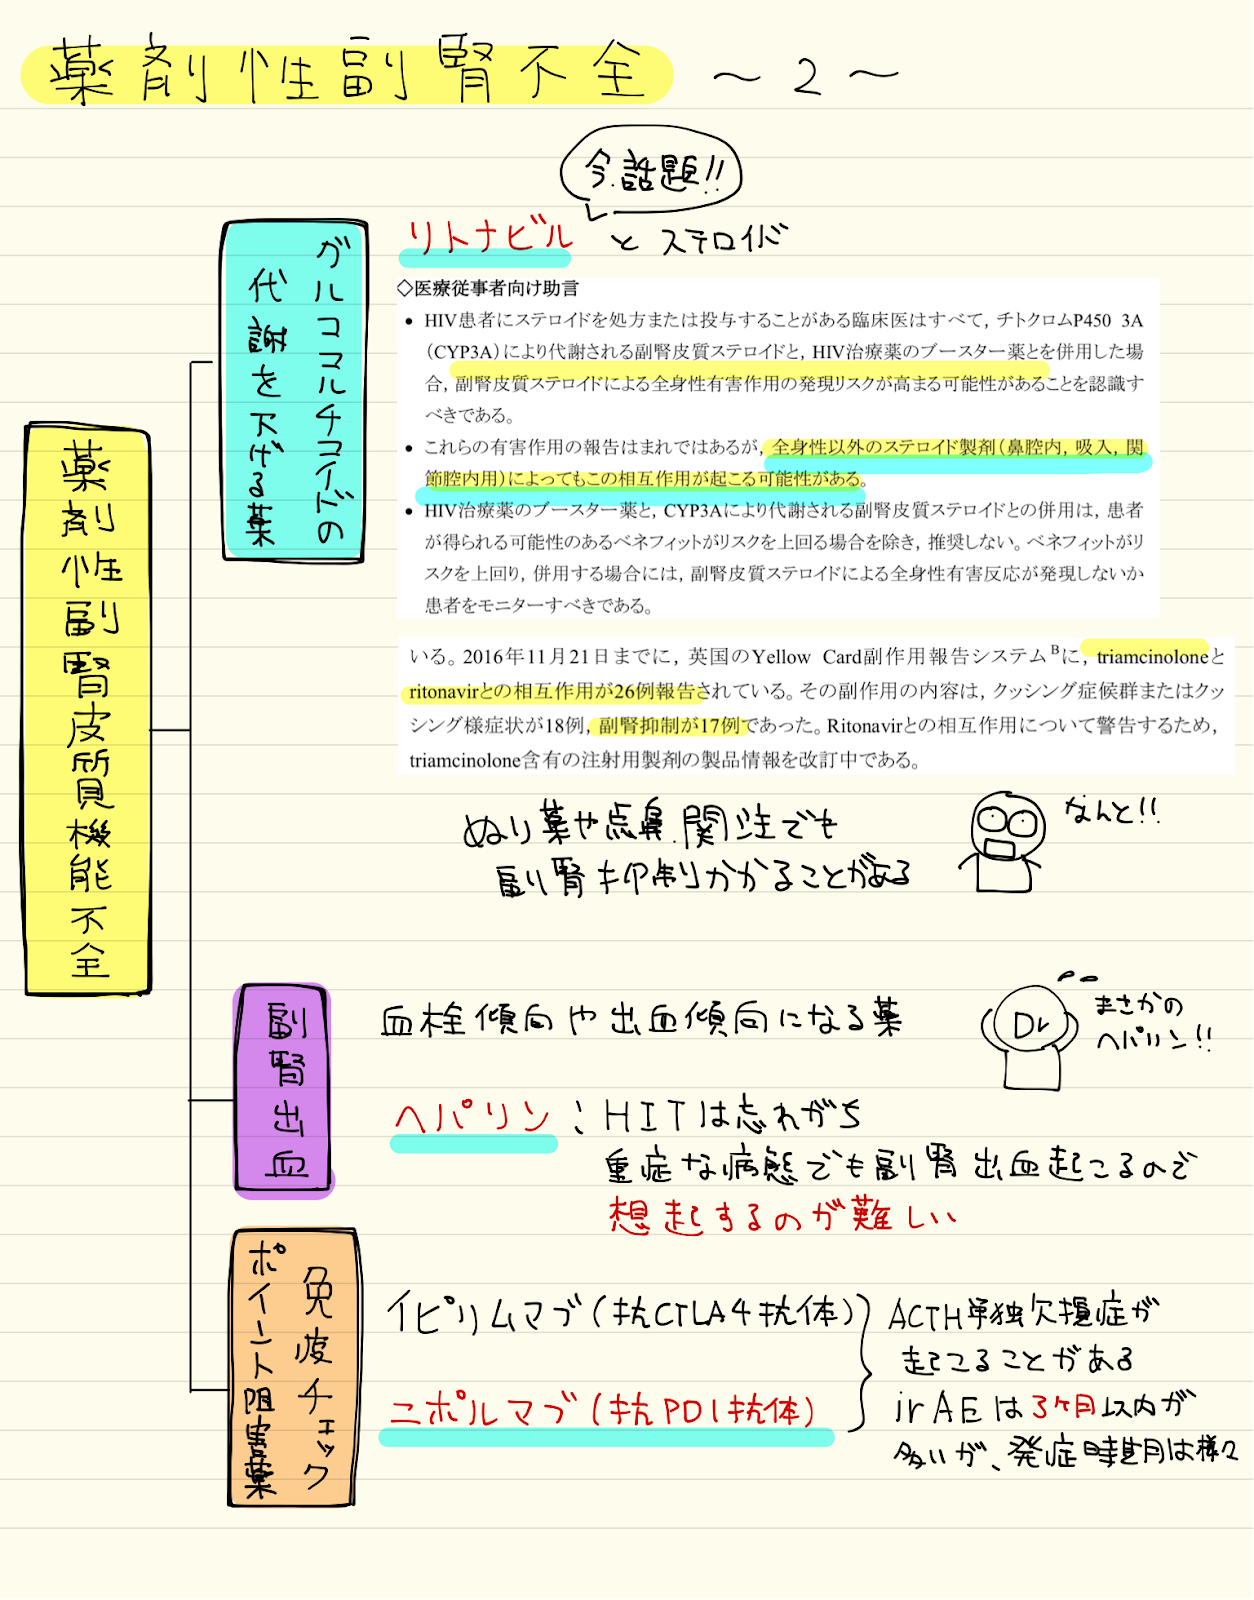 薬剤性副腎不全 ～2～
今話題!!
リトナビル とステロイド
グルココルチコイドの
代謝を下げる薬
◇医療従事者向け助言
• HIV患者にステロイドを処方または投与することがある臨床医はすべて，チトクロムP450 3A
（CYP3A）により代謝される副腎皮質ステロイドと，HIV治療薬のブースター薬とを併用した場
合，副腎皮質ステロイドによる全身性有害作用の発現リスクが高まる可能性があることを認識す
べきである。
• これらの有害作用の報告はまれではあるが，全身性以外のステロイド製剤（鼻腔内，吸入，関
節腔内用）によってもこの相互作用が起こる可能性がある。
• HIV治療薬のブースター薬と，CYP3Aにより代謝される副腎皮質ステロイドとの併用は，患者
が得られる可能性のあるベネフィットがリスクを上回る場合を除き，推奨しない。ベネフィットがリ
スクを上回り，併用する場合には，副腎皮質ステロイドによる全身性有害反応が発現しないか
患者をモニターすべきである。
いる。2016年11月21日までに，英国のYellow Card副作用報告システムBに，triamcinoloneと
ritonavirとの相互作用が26例報告されている。その副作用の内容は，クッシング症候群またはクッ
シング様症状が18例，副腎抑制が17例であった。Ritonavirとの相互作用について警告するため，
triamcinolone含有の注射用製剤の製品情報を改訂中である。
薬剤性副腎皮質機能不全
ぬり薬や点鼻、関注でも
副腎抑制かかることがある
なんと!!
副腎出血
血栓傾向や出血傾向になる薬
Dr
まさかの
ヘパリン!!
ヘパリン：HITは忘れがち
重症な病態でも副腎出血起こるので
想起するのが難しい
免疫チェック
ポイント阻害薬
イピリムマブ（抗CTLA4抗体）
ニボルマブ（抗PD1抗体）
ACTH単独欠損症が
起こることがある
irAEは3ヶ月以内が
多いが、発症時期は様々